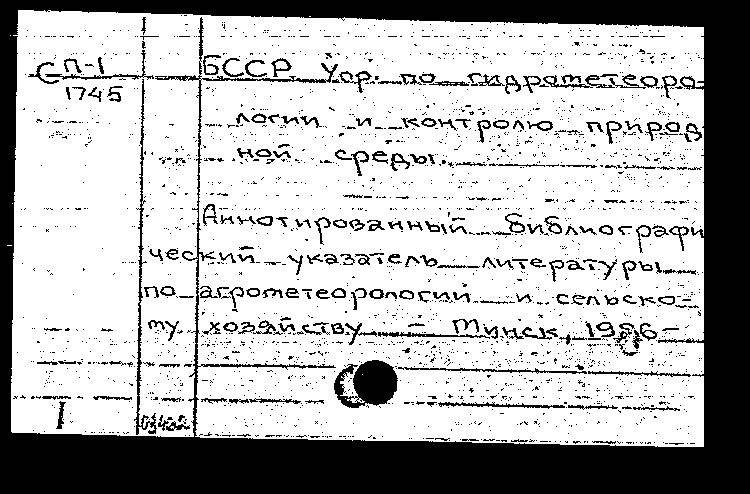 СП-1
1745
БССР. Упр. по гидрометеоро-
логии и контролю природ
ной среды.
Аннотированный библиографи
ческий указатель литературы
по агрометеорологии и сельско-
му хозяйству – Минск, 1986 –
I